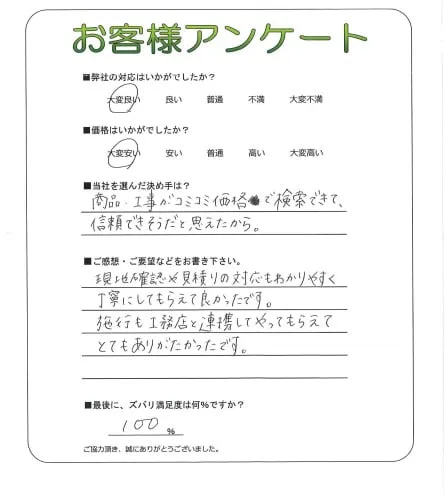 お客様アンケート
■弊社の対応はいかがでしたか?
大変良い 良い 普通 不満 大変不満
■価格はいかがでしたか?
大変安い 安い 普通 高い 大変高い
■当社を選んだ決め手は?
商品・工事がコミコミ価格で検索できて、
信頼できそうだと思えたから。
■ご感想・ご要望などをお書き下さい。
現地確認や見積りの対応もわかりやすく
丁寧にしてもらえて良かったです。
施行も工務店と連携してやってもらえて
とてもありがたかったです。
■最後に、ズバリ満足度は何%ですか?
100 %
ご協力頂き、誠にありがとうございました。